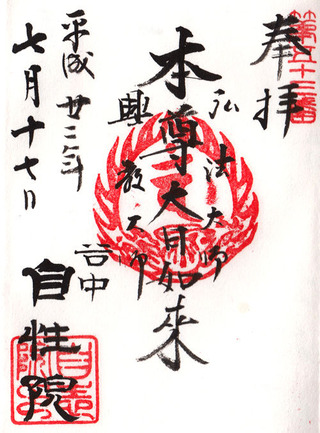 奉拝
第五十三番
弘法大師
本尊大日如来
興教大師
平成廿二年
七月十七日
自性院